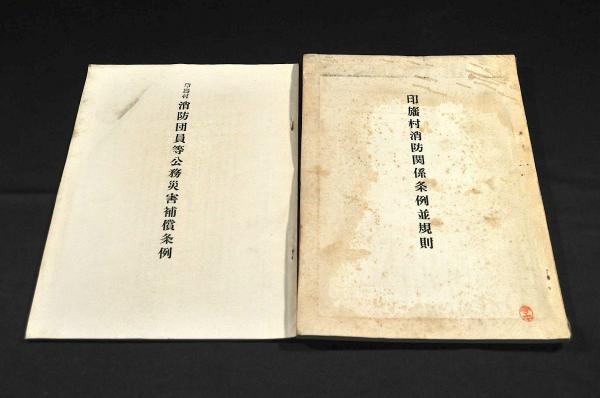 印旛村消防関係条例並規則
印旛村 消防団員等公務災害補償条例